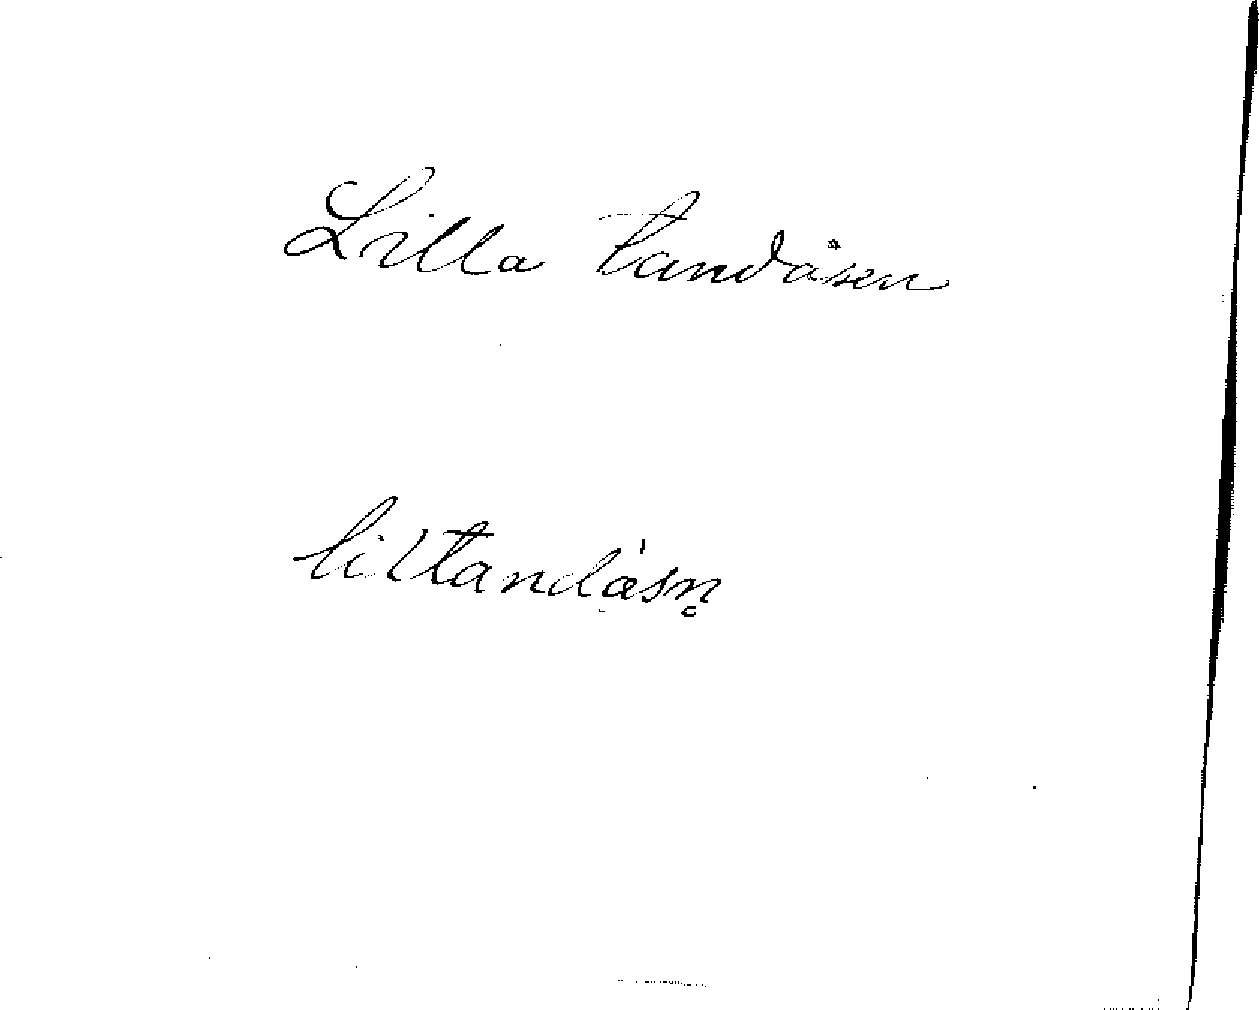 Lilla tandåsen
liltandásn̥